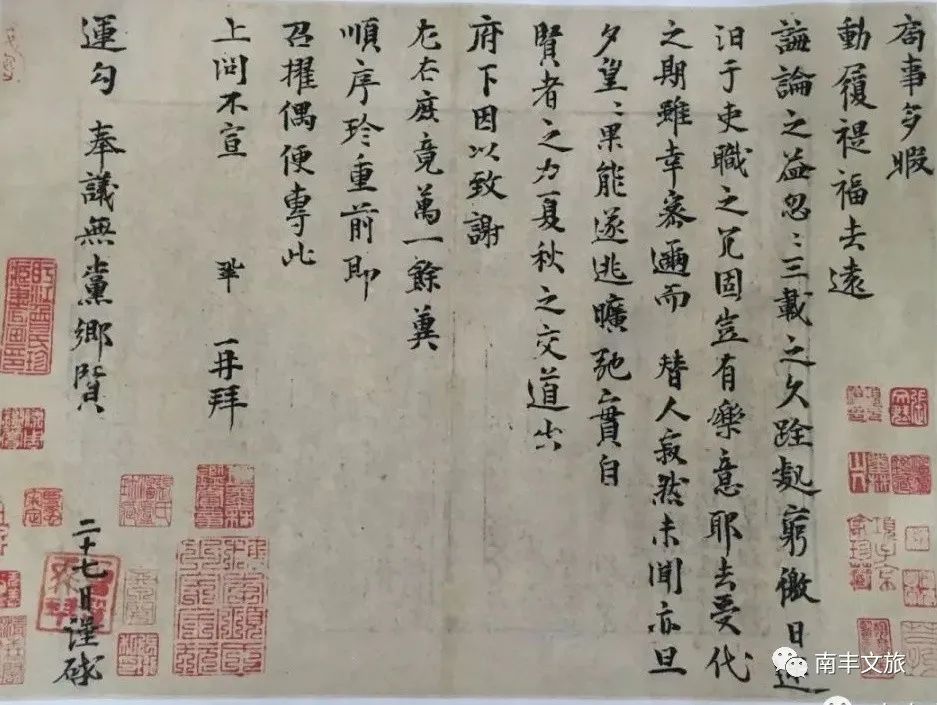 局事多暇
動履禔福去遠
誨論之益忽〻三載之久跧處窮徼日迷
汨于吏職之冗固豈有樂意耶去受代
之期雖幸密邇而 替人寂然未聞亦旦
夕望〻果能遂逃曠弛實自
賢者之力夏秋之交道出
府下因以致謝
左右庶竟萬一餘冀
順序珍重前即
召擢偶便專此
上問不宣 鞏 再拜
運勾 奉議無黨鄉賢 二十七日謹啟
項子京家珍藏
南丰文旅